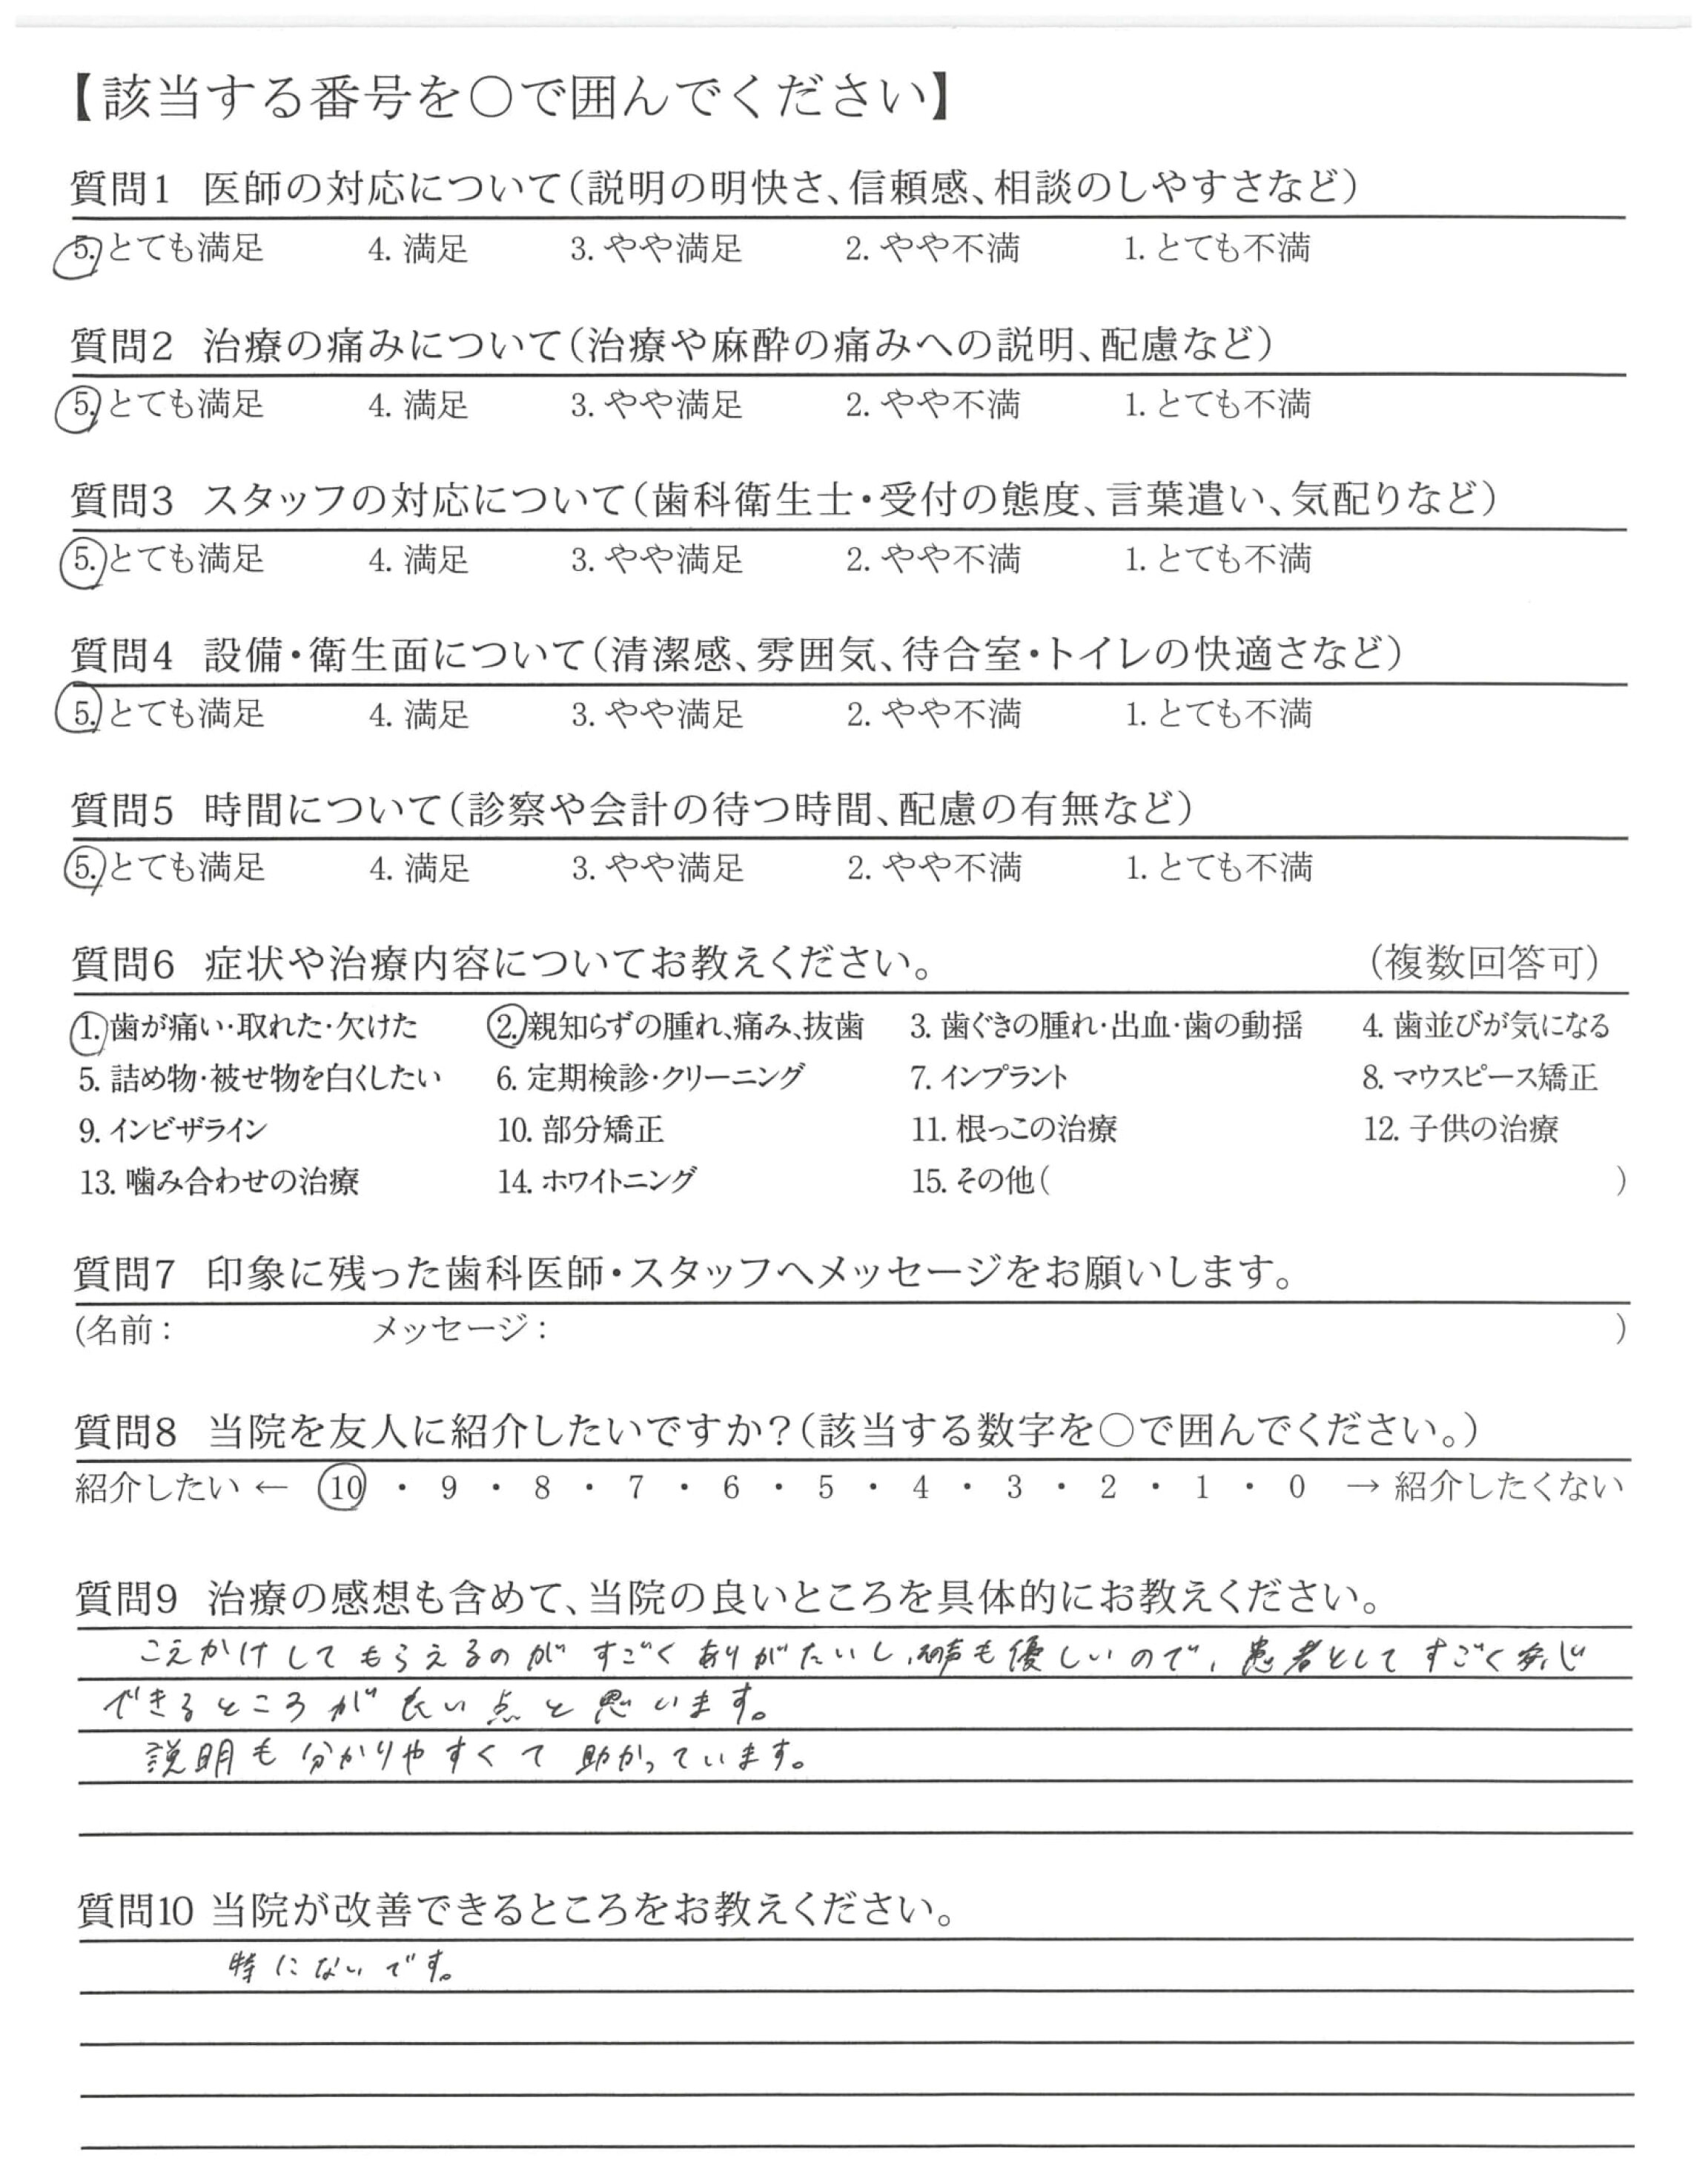 【該当する番号を○で囲んでください】
質問1 医師の対応について(説明の明快さ、信頼感、相談のしやすさなど)
5. とても満足 4. 満足 3. やや満足 2. やや不満 1. とても不満
質問2 治療の痛みについて(治療や麻酔の痛みへの説明、配慮など)
5. とても満足 4. 満足 3. やや満足 2. やや不満 1. とても不満
質問3 スタッフの対応について(歯科衛生士・受付の態度、言葉遣い、気配りなど)
5. とても満足 4. 満足 3. やや満足 2. やや不満 1. とても不満
質問4 設備・衛生面について(清潔感、雰囲気、待合室・トイレの快適さなど)
5. とても満足 4. 満足 3. やや満足 2. やや不満 1. とても不満
質問5 時間について(診察や会計の待つ時間、配慮の有無など)
5. とても満足 4. 満足 3. やや満足 2. やや不満 1. とても不満
質問6 症状や治療内容についてお教えください。 (複数回答可)
1. 歯が痛い・取れた・欠けた 2. 親知らずの腫れ、痛み、抜歯 3. 歯ぐきの腫れ・出血・歯の動揺 4. 歯並びが気になる
5. 詰め物・被せ物を白くしたい 6. 定期検診・クリーニング 7. インプラント 8. マウスピース矯正
9. インビザライン 10. 部分矯正 11. 根っこの治療 12. 子供の治療
13. 噛み合わせの治療 14. ホワイトニング 15. その他( )
質問7 印象に残った歯科医師・スタッフへメッセージをお願いします。
(名前: メッセージ: )
質問8 当院を友人に紹介したいですか?(該当する数字を○で囲んでください。)
紹介したい ← 10 ・ 9 ・ 8 ・ 7 ・ 6 ・ 5 ・ 4 ・ 3 ・ 2 ・ 1 ・ 0 → 紹介したくない
質問9 治療の感想も含めて、当院の良いところを具体的にお教えください。
こえかけしてもらえるのが すごくありがたいし、声も優しいので、患者としてすごく安心
できるところが良い点と思います。
説明も分かりやすくて助かっています。
質問10 当院が改善できるところをお教えください。
特にないです。